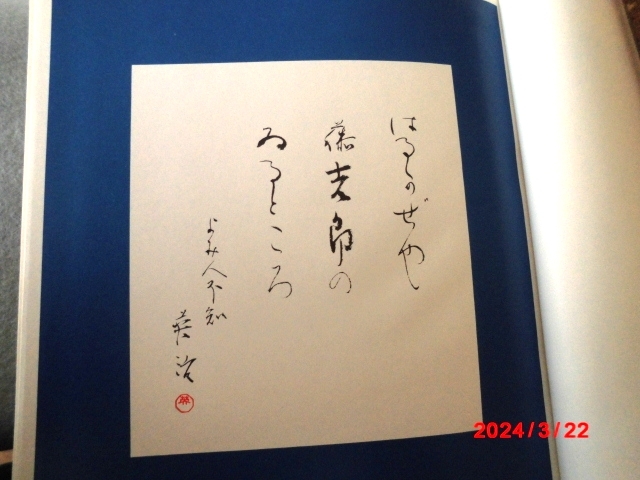 はるかぜや
藤吉郎の
ゐるところ
よみ人不知
葵治
2024/3/22